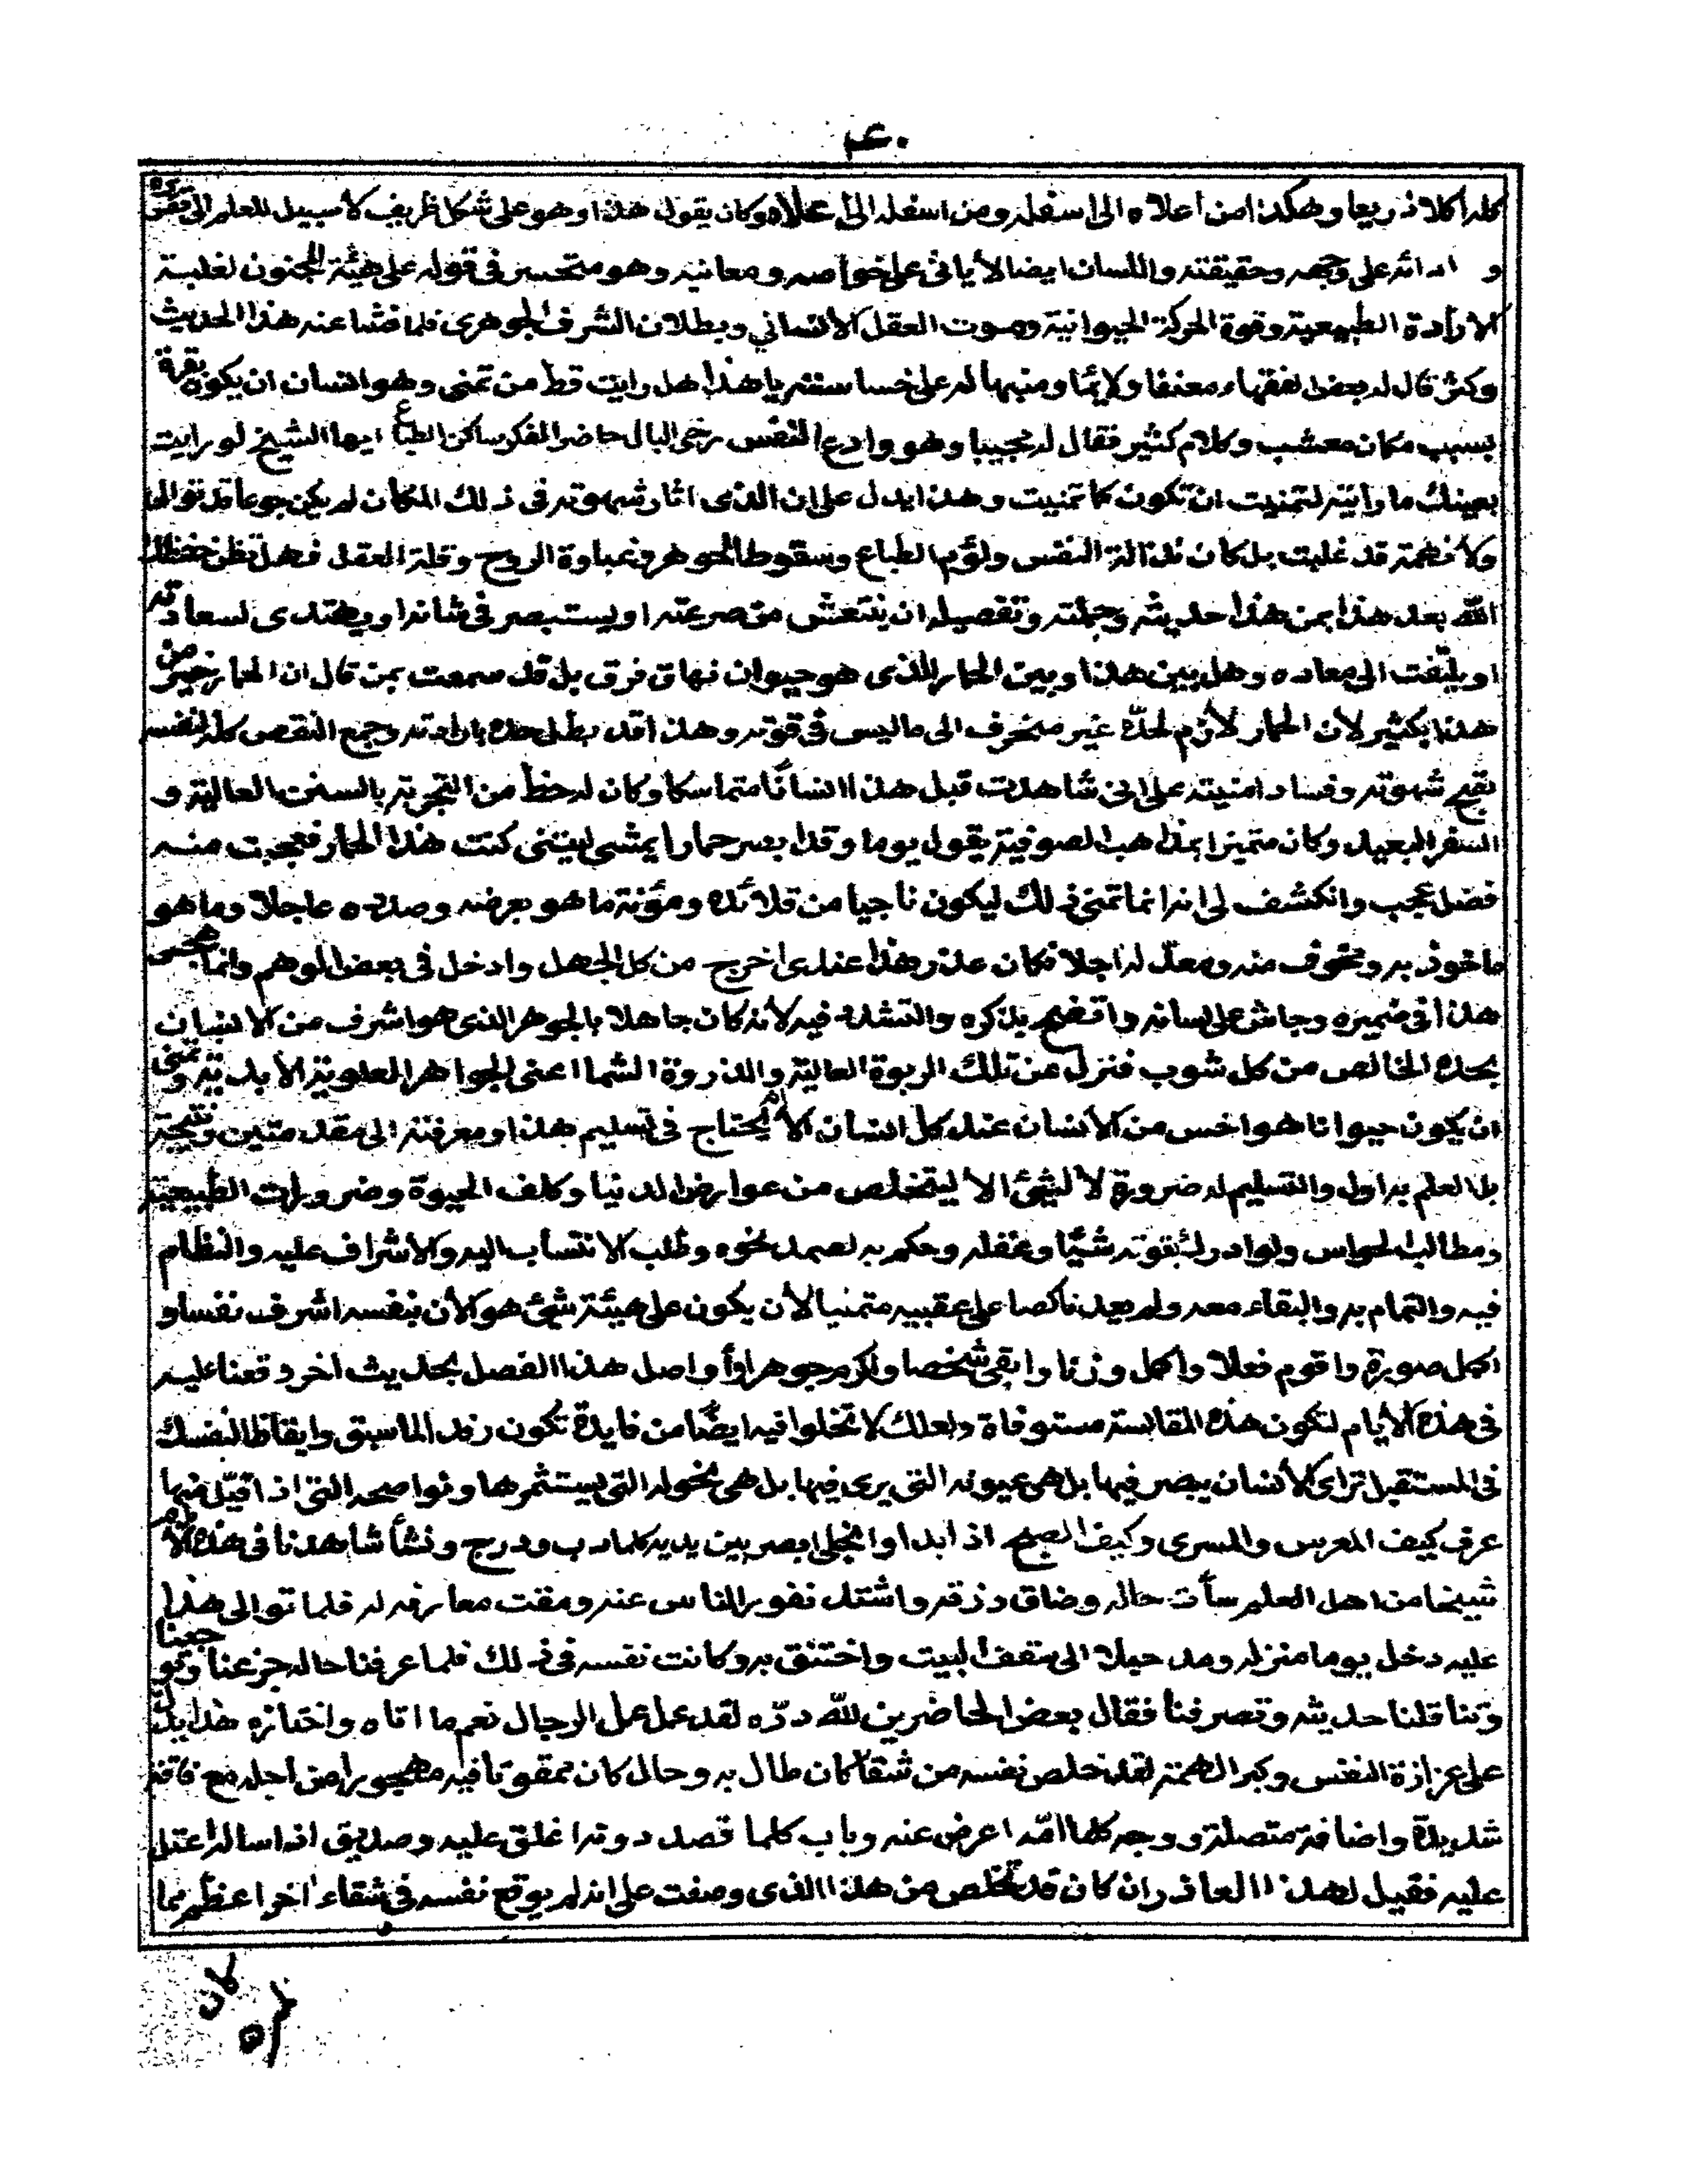 ٤٠
كله اكلا ذريعا وهكذا من اعلاه الى اسفله ومن اسفله الى اعلاه وكان يقول هذا وهو على شكل ظريف لا سبيل للعلم الى
و ادائه على وجهه وحقيقته واللسان ايضا لا ياتى على خواصه ومعانيه وهو متحسر فى قوله على هيئة المجنون لغلبة
الارادة الطبيعية وقوة الحركة الحيوانية وموت العقل الانسانى وبطلان الشرف الجوهرى فلما فشا عنه هذا الحديث
وكثر قال له بعض الفقهاء معنفا ولايما ومنبها له على خساسته يا هذا هل رايت قط من تمنى وهو انسان ان يكون بقرة
بسبب مكان معشب وكلام كثير فقال له مجيبا وهو وادع النفس رخى البال حاضر الفكر ساكن الطباع ايها الشيخ لو رايت
بعينك ما رايته لتمنيت ان تكون كما تمنيت وهذا يدل على ان الذى اثار شهوته فى ذلك المكان لم يكن جوعا قد توالى
ولا نهمة قد غلبت بل كان نذالة النفس ولؤم الطباع وسقوط الجوهر وغباوة الروح وقلة العقل فهل تظن حفظك
الله بعد هذا بمن هذا حديثه وجملته وتفصيله ان ينتعش من صرعته او يستبصر فى شانه او يهتدى لسعادته
او يلتفت الى معاده وهل بين هذا وبين الحمار الذى هو حيوان نهاق فرق بل قد سمعت بمن قال ان الحمار خير من
هذا بكثير لان الحمار لازم لحده غير منحرف الى ما ليس فى قوته وهذا قد بطل حده بارادته وجمع النقص كله لنفسه
بقبح شهوته وفساد امنيته على انى شاهدت قبل هذا انسانا متماسكا وكان له حظ من التجربة بالسن العالية و
السفر البعيد وكان متميزا بمذهب الصوفية يقول يوما وقد ابصر حمارا يمشى ليتنى كنت هذا الحمار فعجبت منه
فضل عجب وانكشف لى انه انما تمنى ذلك ليكون ناجيا من قلائده ومؤنة ما هو بعرضه وصدده عاجلا وما هو
ماخوذ به ومخوف منه ومعد له اجلا فكان عذر هذا عندى اخرج من كل الجهل وادخل فى بعض الوهم وانما
هذا فى ضميره وجاش على لسانه وافتضح بذكره والتشدد فيه لانه كان جاهلا بالجوهر الذى هو اشرف من الانسان
بحده الخالص من كل شوب فنزل عن تلك الربوة العالية والذروة الشما اعنى الجواهر العلوية الابدية وتمنى
ان يكون حيوانا هو اخس من الانسان عند كل انسان لا يحتاج فى تسليم هذا ومعرفته الى مقدمتين ونتيجة
بل العلم به اول والتسليم له ضرورة لا لشئ الا ليتخلص من عوارض الدنيا وكلف الحيوة وضرورات الطبيعية
ومطالب الحواس ولو ادرك بقوته شيئا وعقله وحكم به لصمد نحوه وطلب الانتساب اليه والاشراف عليه والنظام
فيه والتمام به والبقاء معه ولم يعد ناكصا على عقبيه متمنيا لان يكون على هيئة شئ هو الان بنفسه اشرف نفسا و
اكمل صورة واقوم فعلا واكمل وزنا وابقى شخصا واكرم جوهرا واواصل هذا الفصل بحديث اخر دفعنا عليه
فى هذه الايام لتكون هذه المقابسة مستوفاة ولعلك لا تخلوا فيه ايضا من فايدة تكون رفدا لما سبق وايقاظا لنفسك
فى المستقبل تراى الانسان يبصر فيها بل هى عيونه التى يرى فيها بل هى نخوله التى يستثمرها ونواصحه التى اذا قبل منها
عرف كيف المعرس والمسرى وكيف الصبح اذا بدا وانجلى ابصر بين يديه كلما دب ودرج ونشأ شاهدنا فى هذه الايام
شيخا من اهل العلم سأت حاله وضاق رزقه واشتد نفور الناس عنه ومقت معارفه له فلما توالى هذا
عليه دخل يوما منزله ومد حبلا الى سقف البيت واختنق به وكانت نفسه فى ذلك فلما عرفنا حاله جزعنا وتوجعنا
وتناقلنا حديثه وتصرفنا فقال بعض الحاضرين لله دره لقد عمل عمل الرجال نعم ما اتاه واختاره هذا يدل
على عزازة النفس وكبر الهمة لقد خلص نفسه من شقا كان طال به وحال كان ممقوتا فيه مهجورا من اجله مع فاقة
شديدة واضافة متصلة ووجه كلما امه اعرض عنه وباب كلما قصد دونه اغلق عليه وصديق اذا ساله اعتل
عليه فقيل لهذا العاذر ان كان قد تخلص من هذا الذى وصفت على انه لم يوقع نفسه فى شقاء اخر اعظم مما
كان